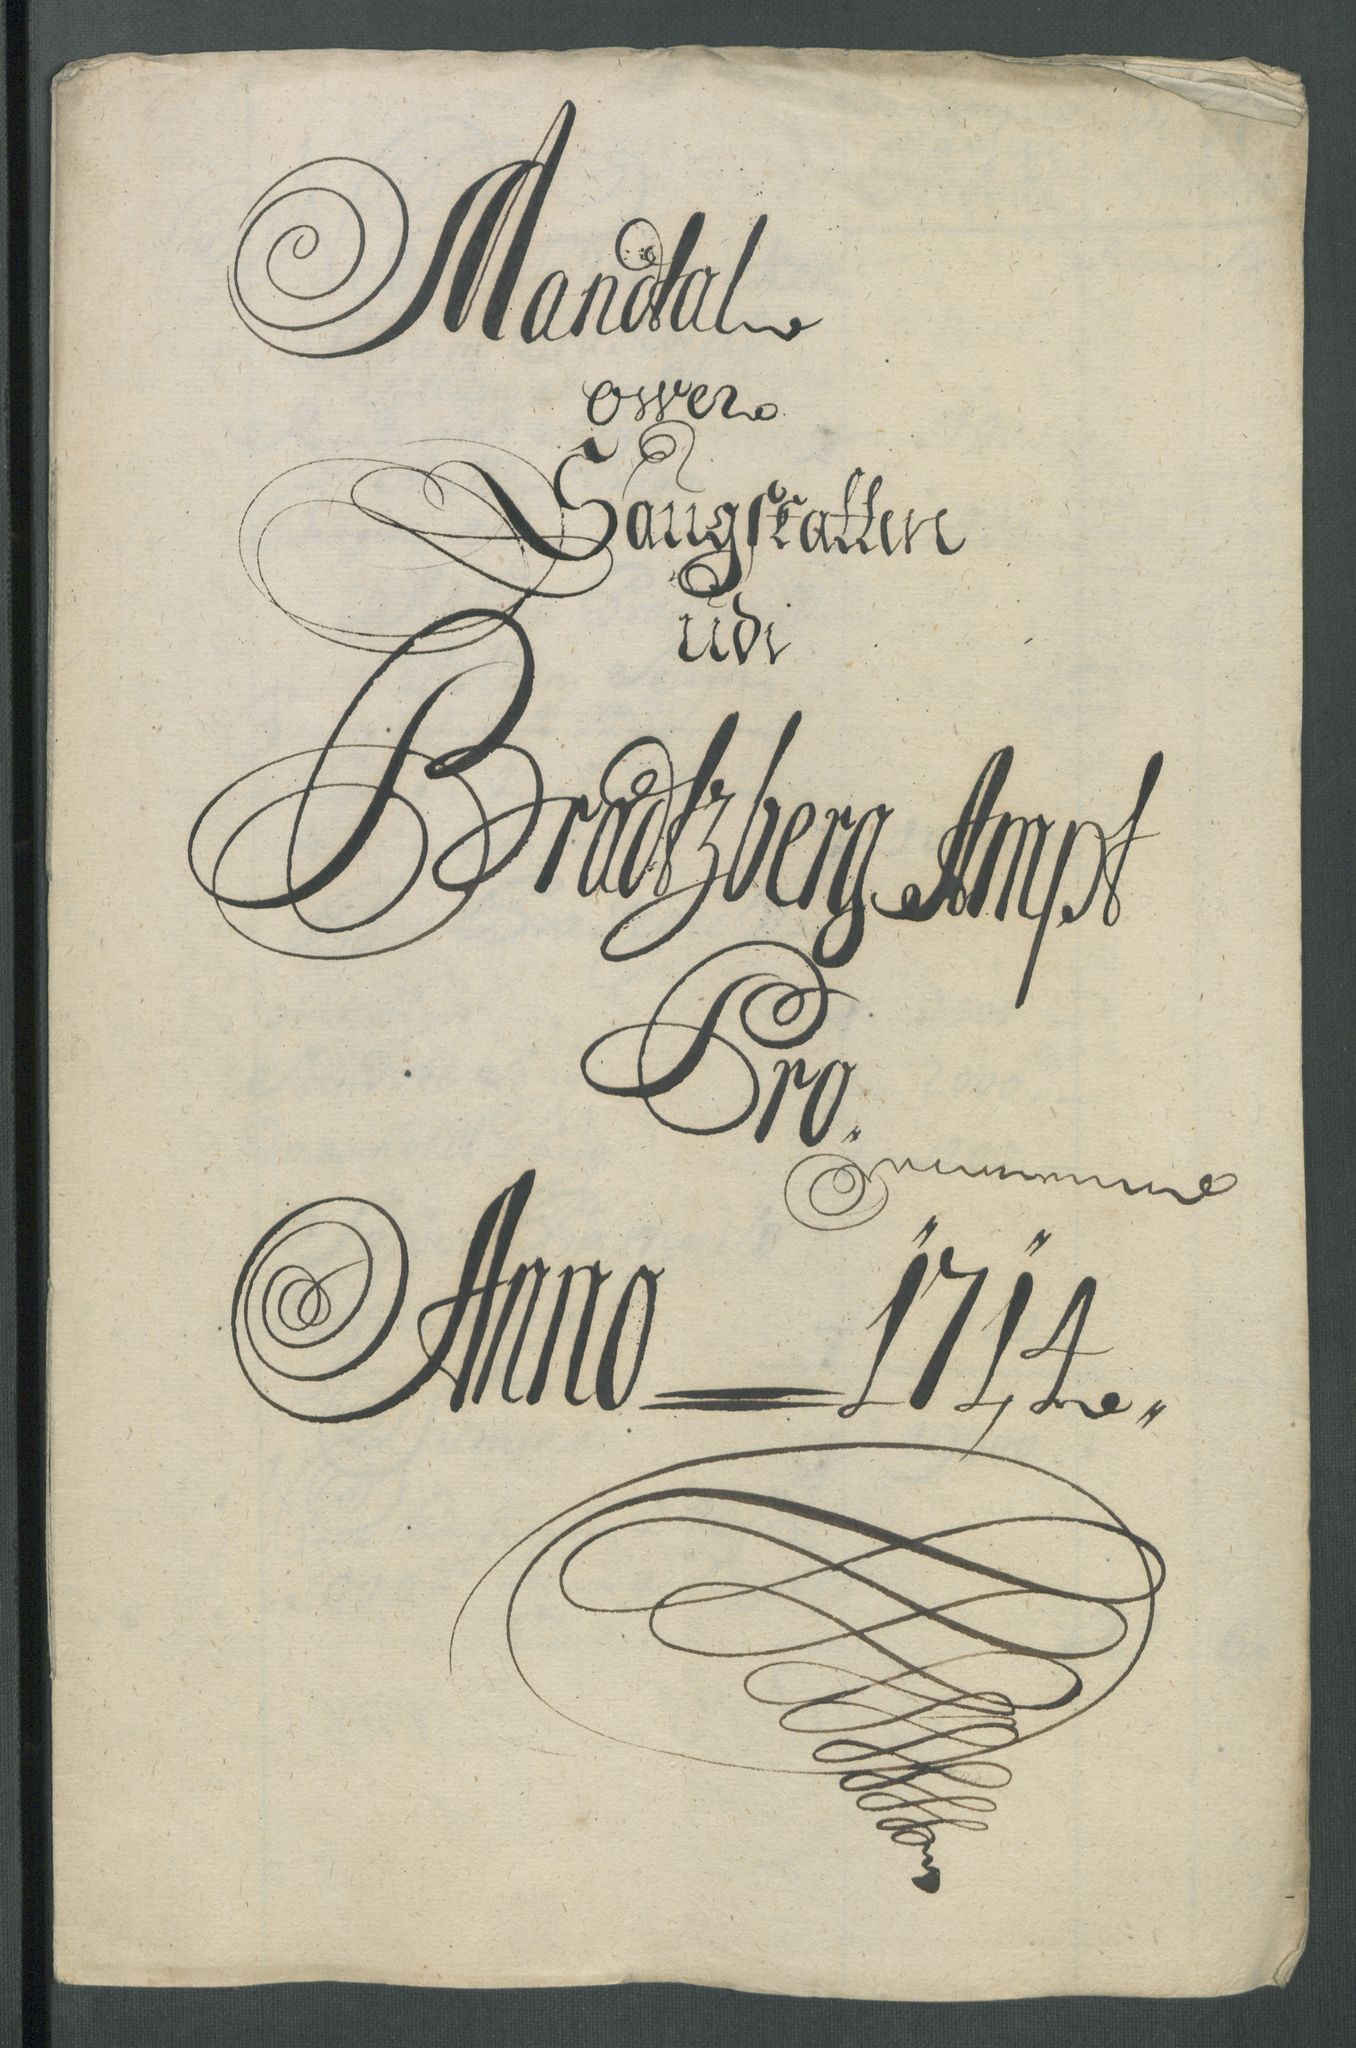 Mandtal
ower
Saugskatten
udi
Bradtzberg Ampt
Pro
Anno 1714